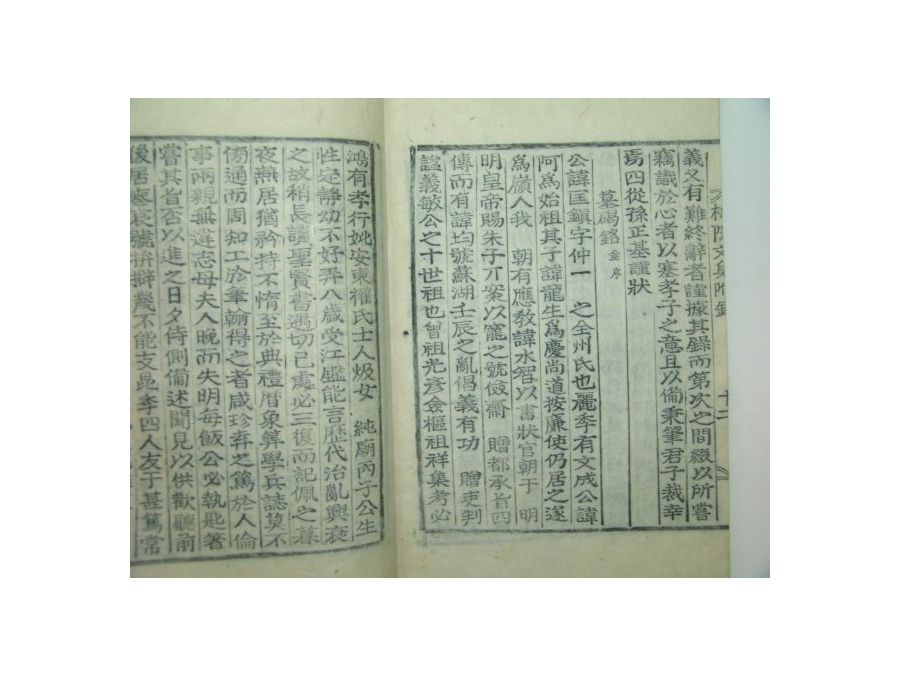 文集附錄
十二
義又有難終辭者謹據其錄而第次之間綴以所嘗
竊識於心者以塞孝子之意且以備秉筆君子裁幸
焉四從孫正基謹狀
墓碣銘 並序
公諱匡鎮字仲一 之全州氏也麗季有文成公諱
阿爲始祖其子諱龍生爲慶尚道按廉使仍居之遂
爲嶺人我 朝有應敎諱水智以書狀官朝于 明
明皇帝賜朱子丌案以寵之號儉齋 贈都承旨四
傳而有諱均號蘇湖壬辰之亂倡義有功 贈吏判
諡義敏公之十世祖也曾祖光彥僉樞祖祥集考必
鴻有孝行妣安東權氏士人烱女 純廟丙子公生
性定靜幼不好弄八歲受江鑑能言歷代治亂興衰
之故稍長讀聖賢書遇切己處必三復而記佩之暮
夜燕居猶矜持不惰至於典禮曆象筭學兵誌莫不
傍通而周知工於筆翰得之者咸珍弆之篤於人倫
事兩親無違志母夫人晚而失明每飯公必執匙箸
嘗其旨否以進之日夕侍側備述聞見以供歡聽前
後居喪哀號擗幾不能支昆季四人友于甚篤常